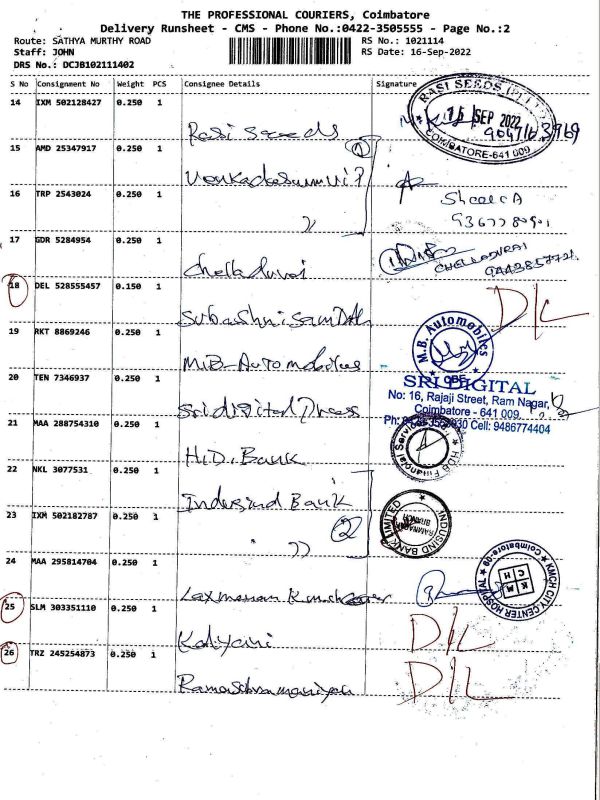 THE PROFESSIONAL COURIERS, Coimbatore
Delivery Runsheet - CMS - Phone No.:0422-3505555 - Page No.:2
Route: SATHYA MURTHY ROAD
RS No.: 1021114
Staff: JOHN
RS Date: 16-Sep-2022
DRS No.: DCJB102111402
S No Consignment No Weight PCS Consignee Details Signature
14 IXM 502128427 0.250 1 Rasi Seeds
RASI SEEDS (P) LTD
SEP 2022
COIMBATORE-641 009
15 AMD 25347917 0.250 1
①
16 TRP 2543024 0.250 1 〃
Sheela A
17 GDR 5284954 0.250 1 Chelladurai
CHELLADURAI
18 DEL 528555457 0.150 1
D/L
19 RKT 8869246 0.250 1 M.B-Automobiles
M.B. Automobiles
CBE
20 TEN 7346937 0.250 1 Sri digital Press
SRI DIGITAL
No: 16, Rajaji Street, Ram Nagar,
Coimbatore - 641 009.
Cell: 9486774404
21 MAA 288754310 0.250 1 H.D. Bank
HDB Financial Services
22 NKL 3077531 0.250 1 Indusind Bank
INDUSIND BANK LIMITED
RAMNAGAR BRANCH
23 IXM 502182787 0.250 1 〃
②
24 MAA 295814704 0.250 1 Laxmanan
KMCH CITY CENTER HOSPITAL
Coimbatore-09
K M
C H
25 SLM 303351110 0.250 1 Kalyani
D/L
26 TRZ 245254873 0.250 1
D/L